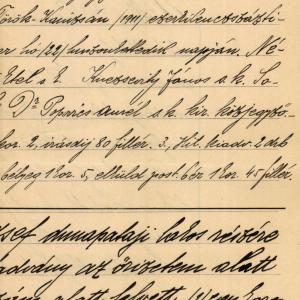 Török-Kanizsán /1911/ ezerkilencszáztí-
er hó /22/ huszonkettedik napján. Né-
Etel s. k. Knezsevity János s. k. So-
Dr Popovics s. k. kir. közjegyző.
kor. 2, irásdij 80 fillér. 3, Hit. kiadv. 2 drb
bélyeg 1 kor. 5, elküld. post. bér 1 kor. 45 fillér.
zsef dunapataji lakos részére
advány az őrizetem alatt
alatt felvett